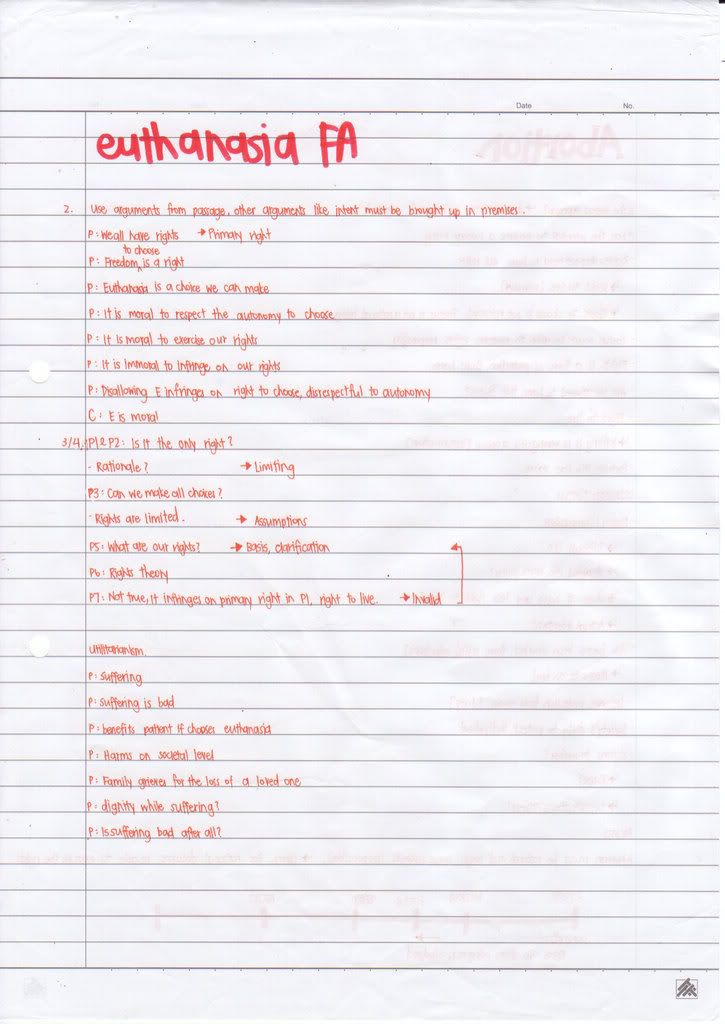 Date No.
euthanasia FA
2. Use arguments from passage, other arguments like intent must be brought up in premises.
P: We all have rights → Primary right
to choose
P: Freedom ^ is a right
P: Euthanasia is a choice we can make
P: It is moral to respect the autonomy to choose
P: It is moral to exercise our rights
P: It is immoral to infringe on our rights
P: Disallowing E infringes on right to choose, disrespectful to autonomy
C: E is moral
3/4. P1&P2: Is it the only right?
- Rationale? → Limiting
P3: Can we make all choices?
- Rights are limited. → Assumptions
P5: What are our rights? → Basis, clarification
P6: Rights theory
P7: Not true, it infringes on primary right in P1, right to live. → Invalid
Utilitarianism.
P: suffering
P: suffering is bad
P: benefits patient if chooses euthanasia
P: Harms on societal level
P: Family grieves for the loss of a loved one
P: dignity while suffering?
P: Is suffering bad after all?